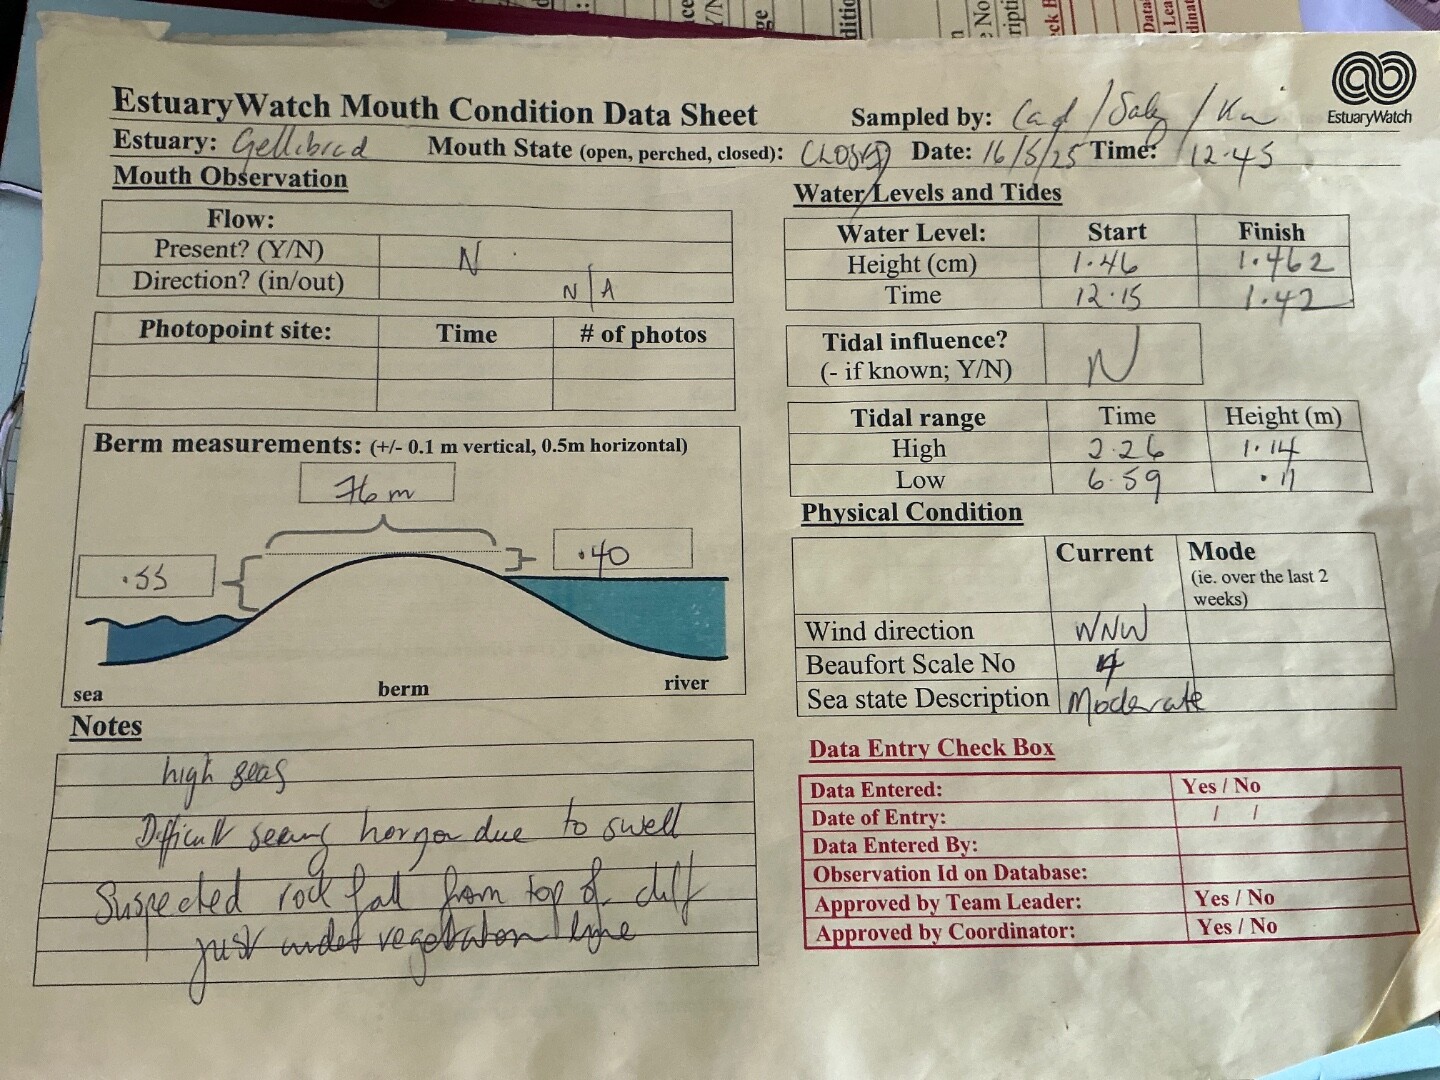 EstuaryWatch Mouth Condition Data Sheet
Sampled by: / /
EstuaryWatch
Estuary: Gellibrd Mouth State (open, perched, closed): CLOSED Date: 16/5/25 Time: 12.45
Mouth Observation
Flow:
Present? (Y/N) N
Direction? (in/out) N/A
Photopoint site: Time # of photos
Berm measurements: (+/- 0.1 m vertical, 0.5m horizontal)
76 m
.40
.55
sea berm river
Notes
high seas
Difficult seeing due to swell
Suspected rock fall from top of cliff
just under vegetation line
Water Levels and Tides
Water Level: Start Finish
Height (cm) 1.46 1.462
Time 12.15 1.42
Tidal influence? N
(- if known; Y/N)
Tidal range Time Height (m)
High 2.26 1.14
Low 6.59 .11
Physical Condition
Current Mode
(ie. over the last 2
weeks)
Wind direction WNW
Beaufort Scale No 4
Sea state Description Moderate
Data Entry Check Box
Data Entered: Yes / No
Date of Entry: / /
Data Entered By:
Observation Id on Database:
Approved by Team Leader: Yes / No
Approved by Coordinator: Yes / No